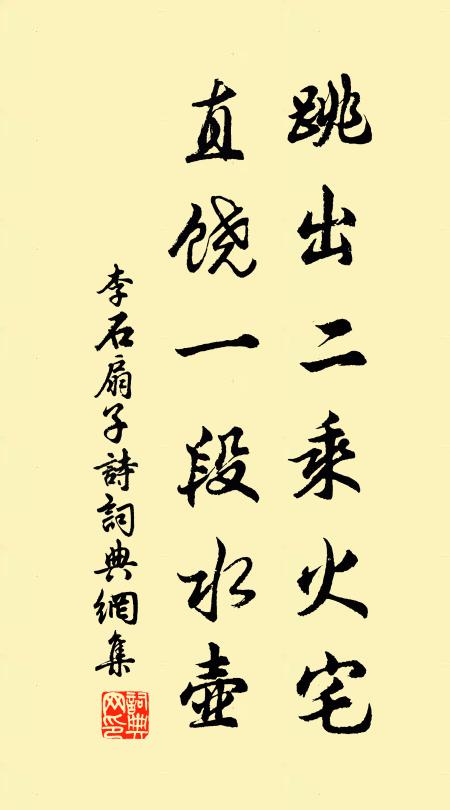 跳出二乘火宅
直饶一段水壶
李石扇子詩詞典網集
詞典网印